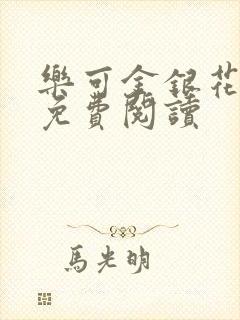 樂可金銀花
免費閱讀
馬光明